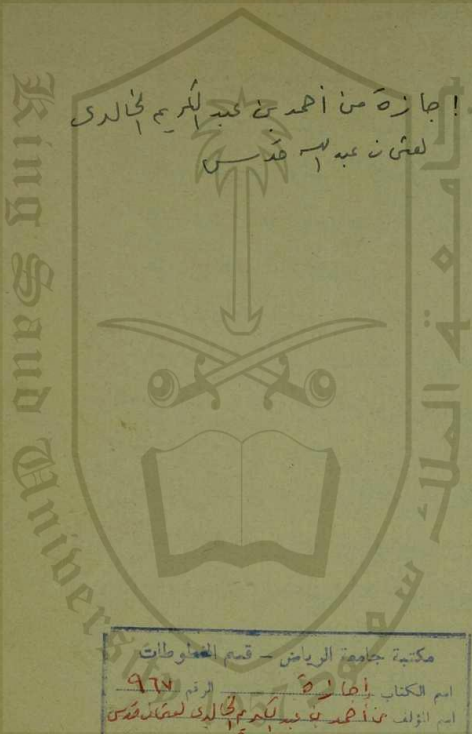 إجازة من أحمد بن عبد الكريم الخالدي
لعثمان عبد الله قدس
King Saud University
جامعة الملك سعود
مكتبة جامعة الرياض - قسم المخطوطات
اسم الكتاب إجازة الرقم ٩٦٧
اسم المؤلف من أحمد بن عبد الكريم الخالدي لعثمان قدس